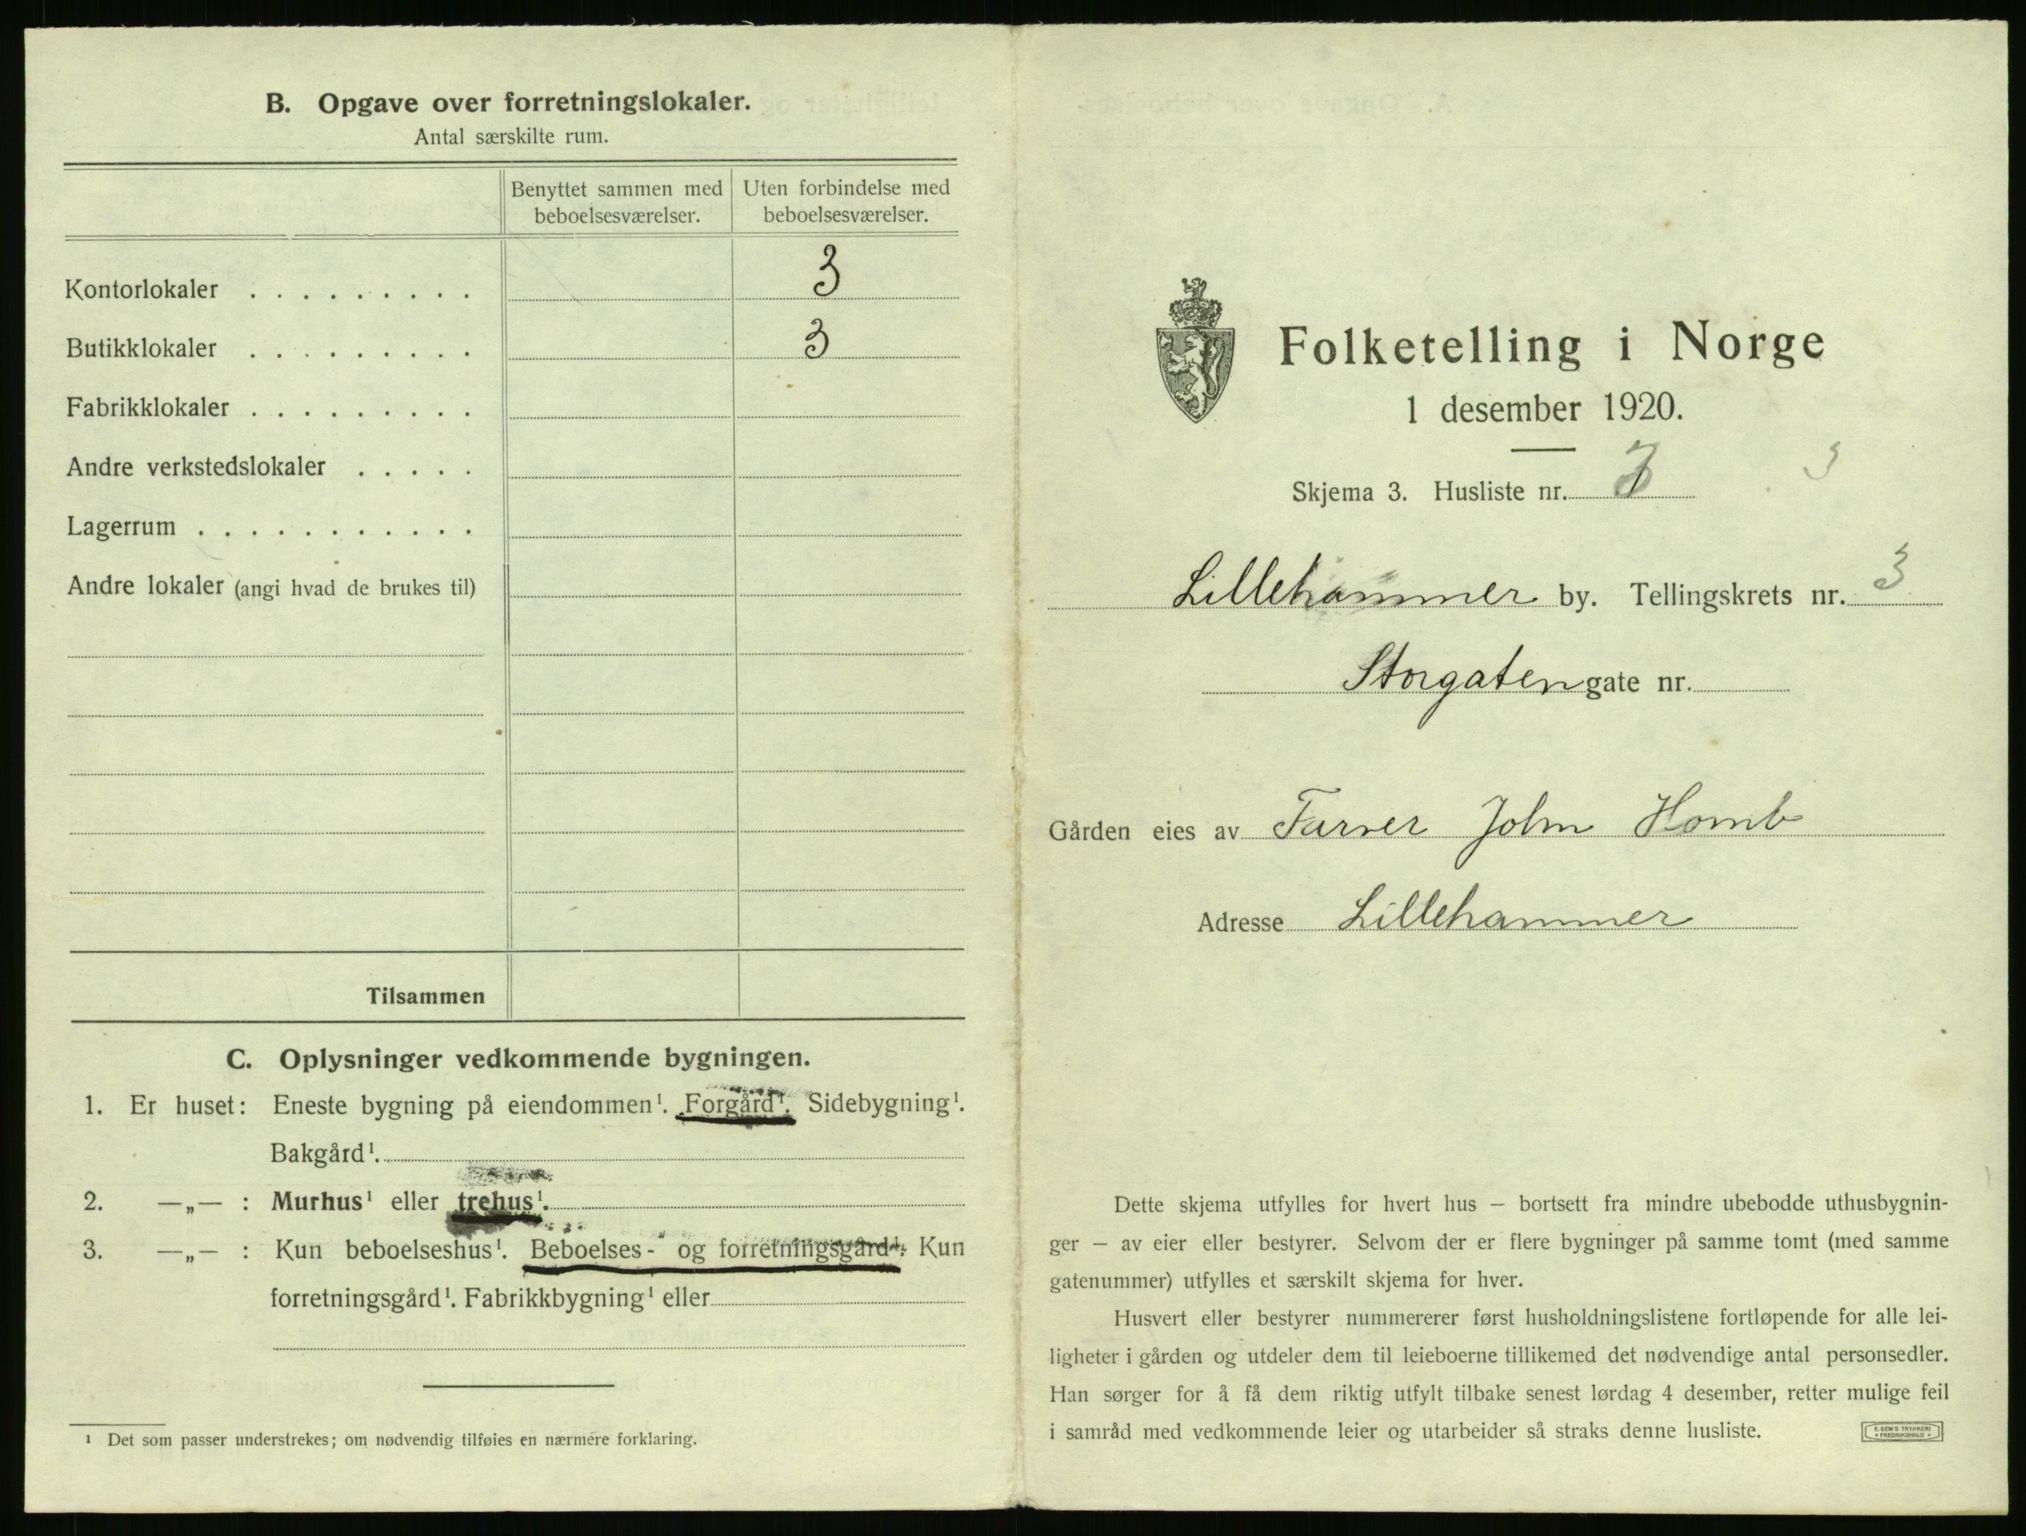 B. Opgave over forretningslokaler.
Antal særskilte rum.
Benyttet sammen med beboelsesværelser.
Uten forbindelse med beboelsesværelser.
Kontorlokaler . . . . . . . . . 3
Butikklokaler . . . . . . . . . 3
Fabrikklokaler . . . . . . . . .
Andre verkstedslokaler . . . . .
Lagerrum . . . . . . . . . . .
Andre lokaler (angi hvad de brukes til)
Tilsammen
C. Oplysninger vedkommende bygningen.
1. Er huset: Eneste bygning på eiendommen¹. Forgård¹. Sidebygning¹.
Bakgård¹.
2. —„— : Murhus¹ eller trehus¹.
3. —„— : Kun beboelseshus¹. Beboelses- og forretningsgård¹. Kun
forretningsgård¹. Fabrikkbygning¹ eller
¹ Det som passer understrekes; om nødvendig tilføies en nærmere forklaring.
Folketelling i Norge
1 desember 1920.
Skjema 3. Husliste nr. 7 3
Lillehammer by. Tellingskrets nr. 3
Storgaten gate nr.
Gården eies av Farver John Homb
Adresse Lillehammer
Dette skjema utfylles for hvert hus – bortsett fra mindre ubebodde uthusbygnin-
ger – av eier eller bestyrer. Selvom der er flere bygninger på samme tomt (med samme
gatenummer) utfylles et særskilt skjema for hver.
Husvert eller bestyrer nummererer først husholdningslistene fortløpende for alle lei-
ligheter i gården og utdeler dem til leieboerne tillikemed det nødvendige antal personsedler.
Han sørger for å få dem riktig utfylt tilbake senest lørdag 4 desember, retter mulige feil
i samråd med vedkommende leier og utarbeider så straks denne husliste.
E. SEM'S TRYKKERI
FREDRIKSHALD